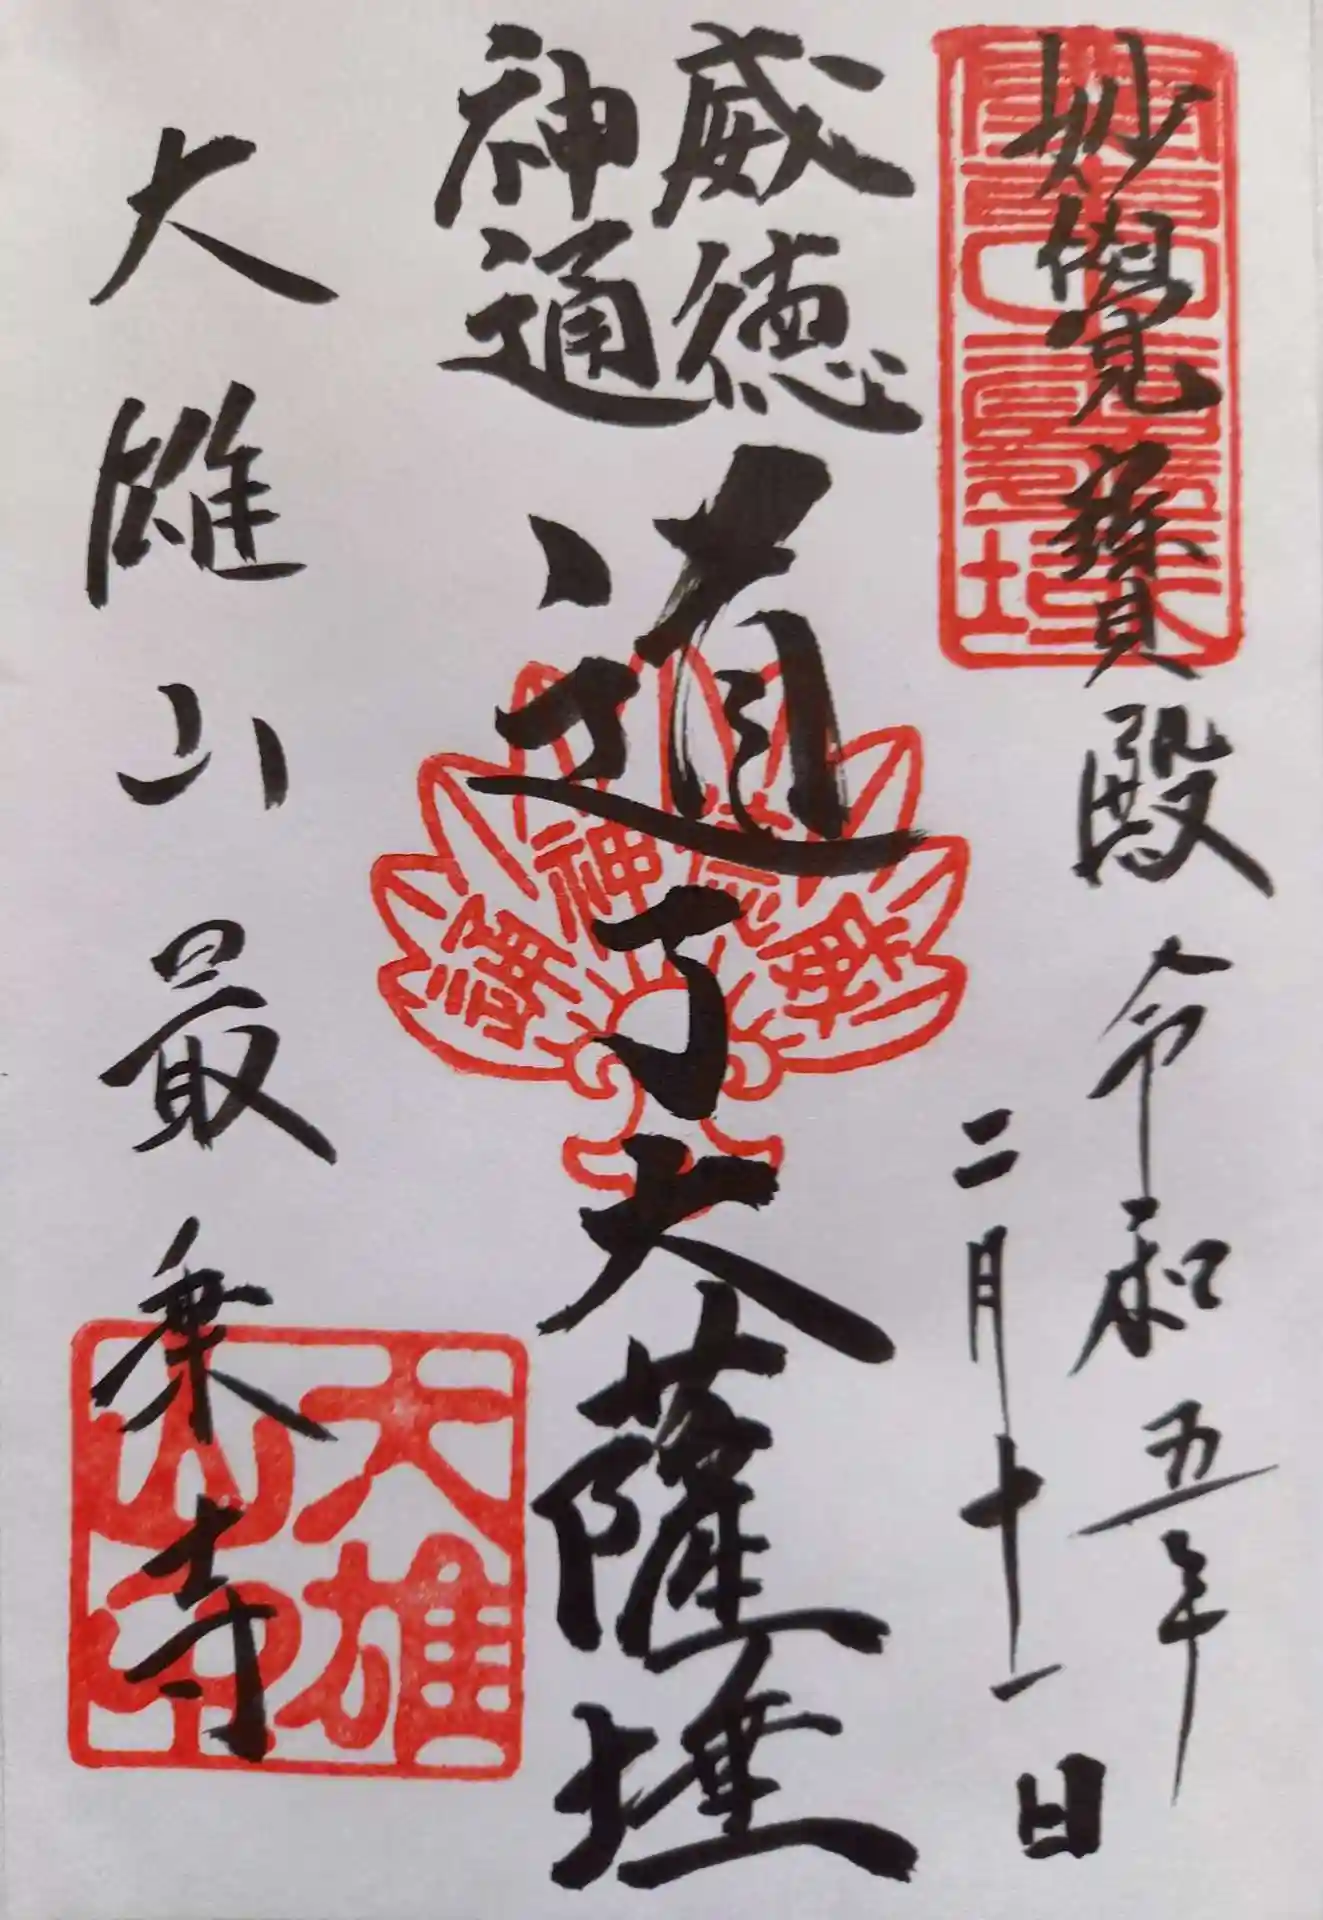 妙覺寶殿 令和五年
二月十一日
威徳
神通
道了大薩埵
大雄山最乗寺
大雄山印